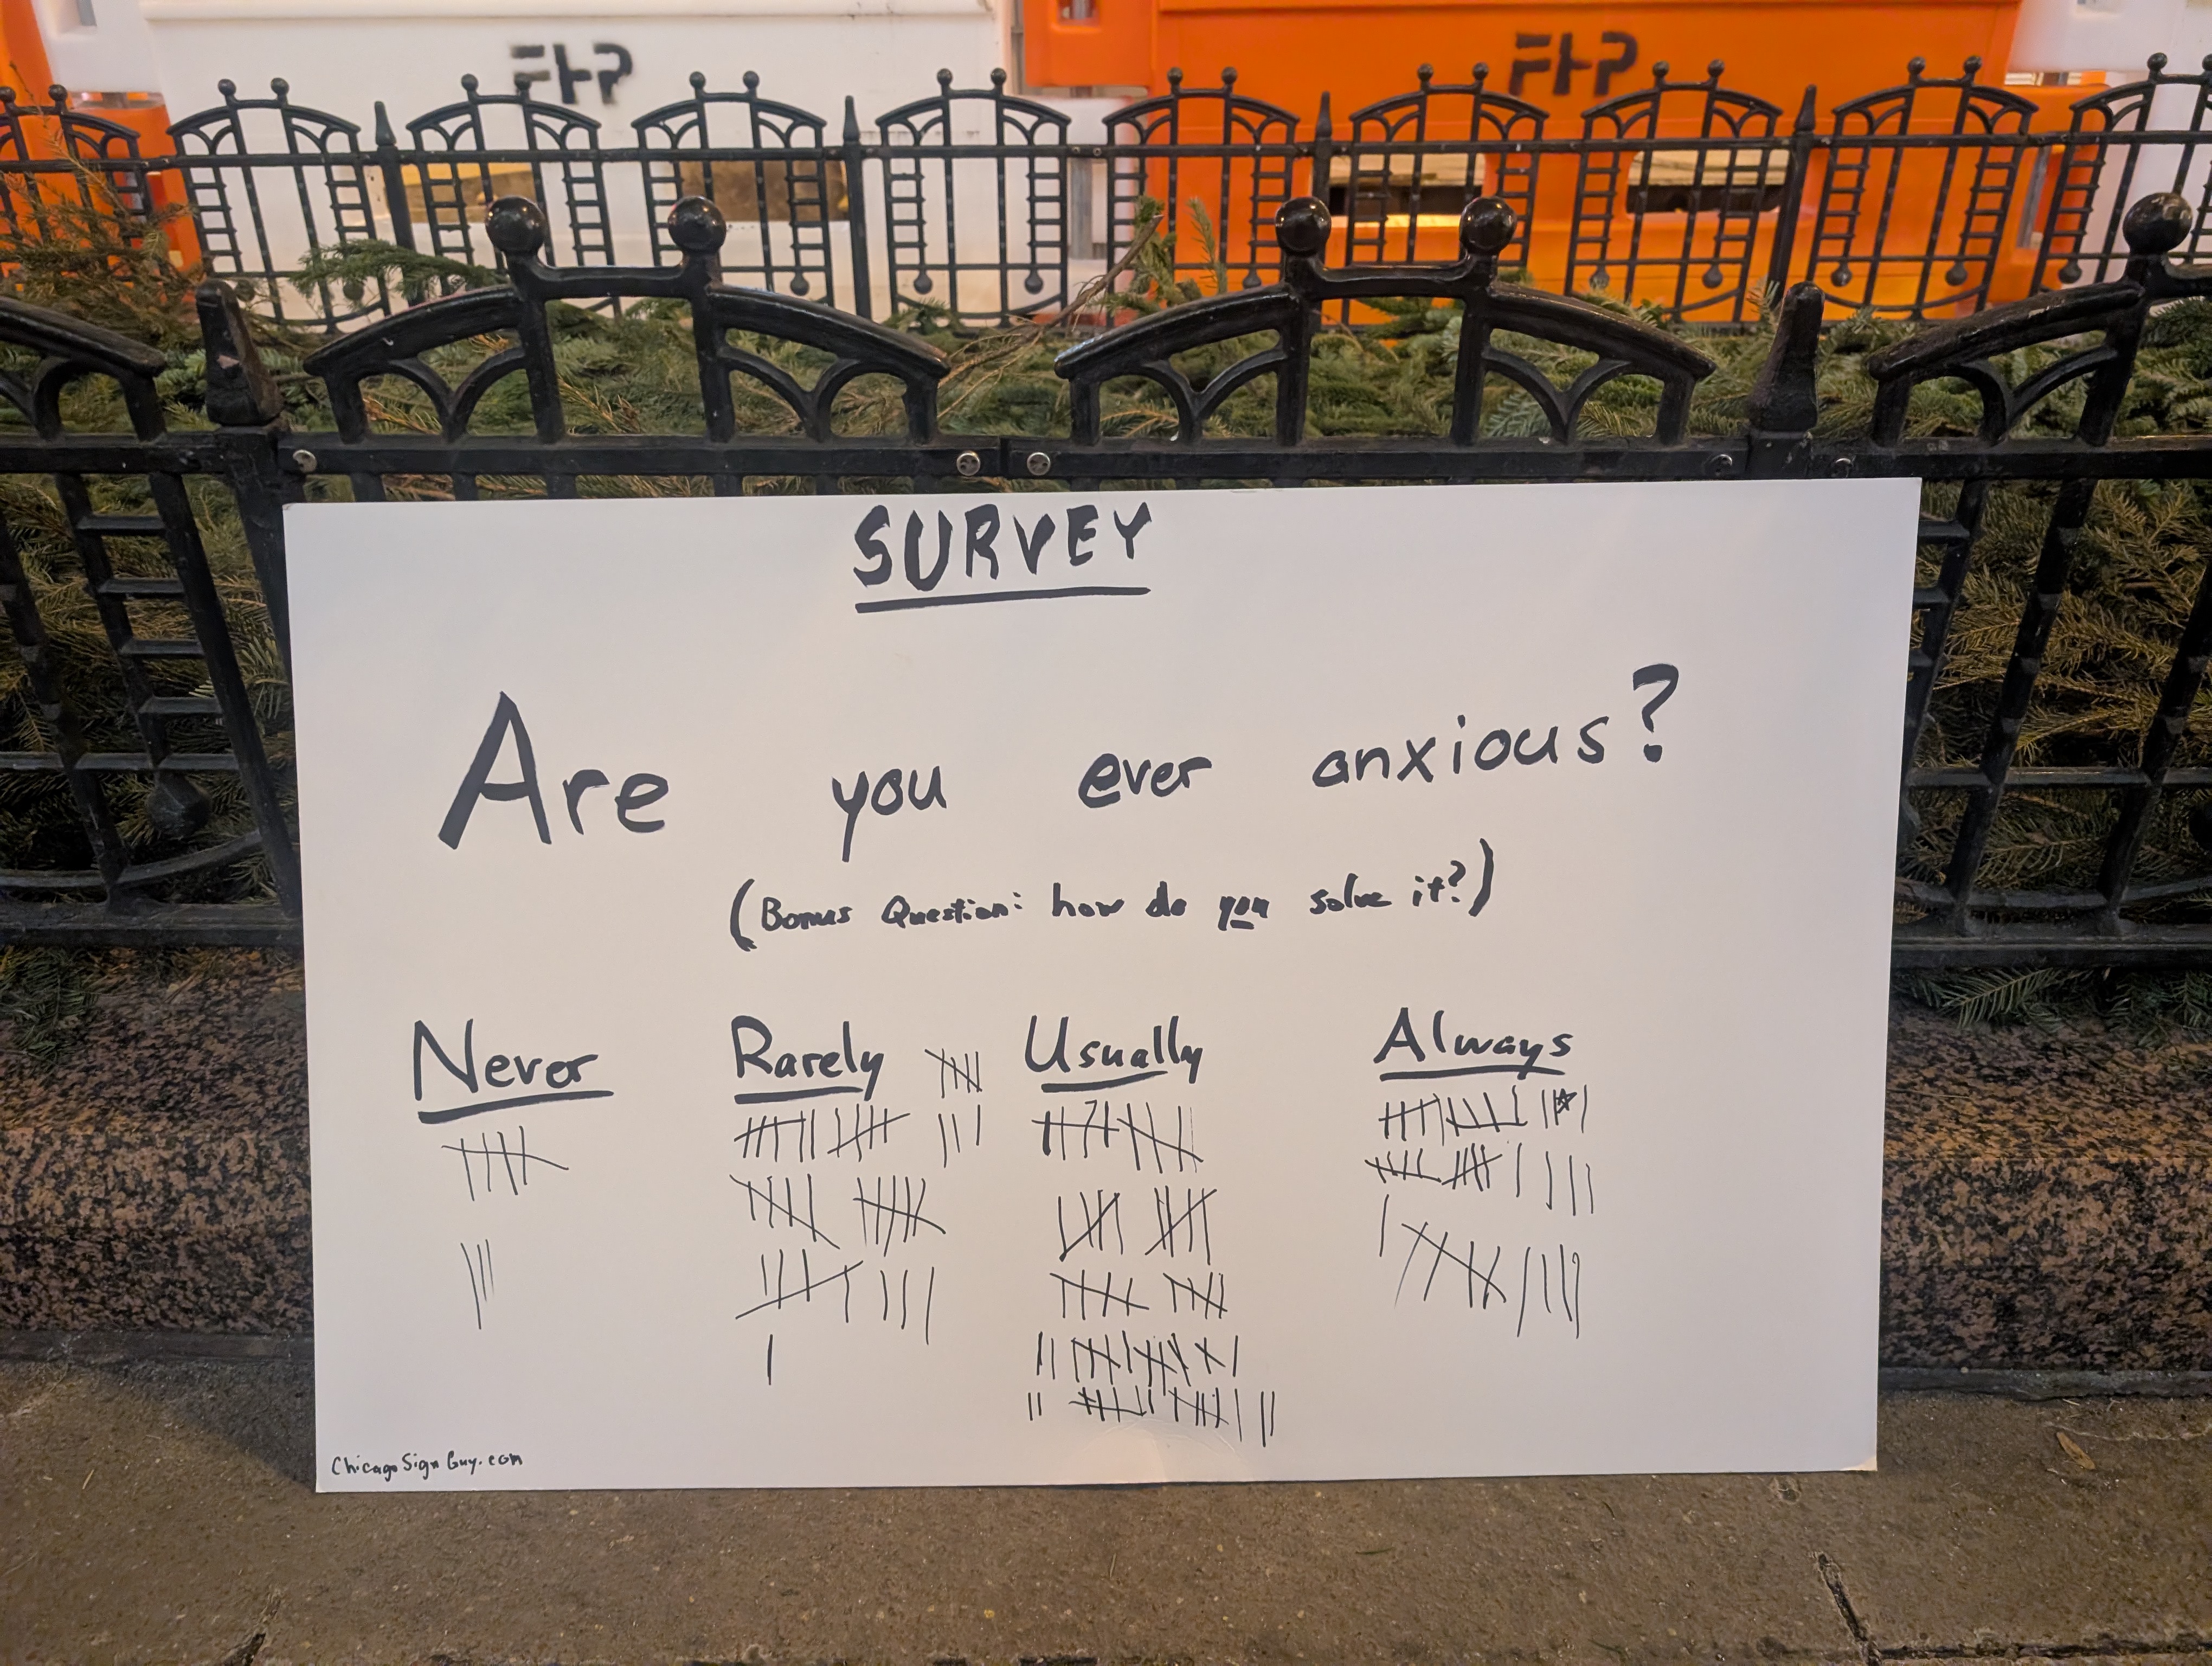 FHP FHP
SURVEY
Are you ever anxious?
(Bonus Question: how do you solve it?)
Never Rarely Usually Always
ChicagoSignGuy.com